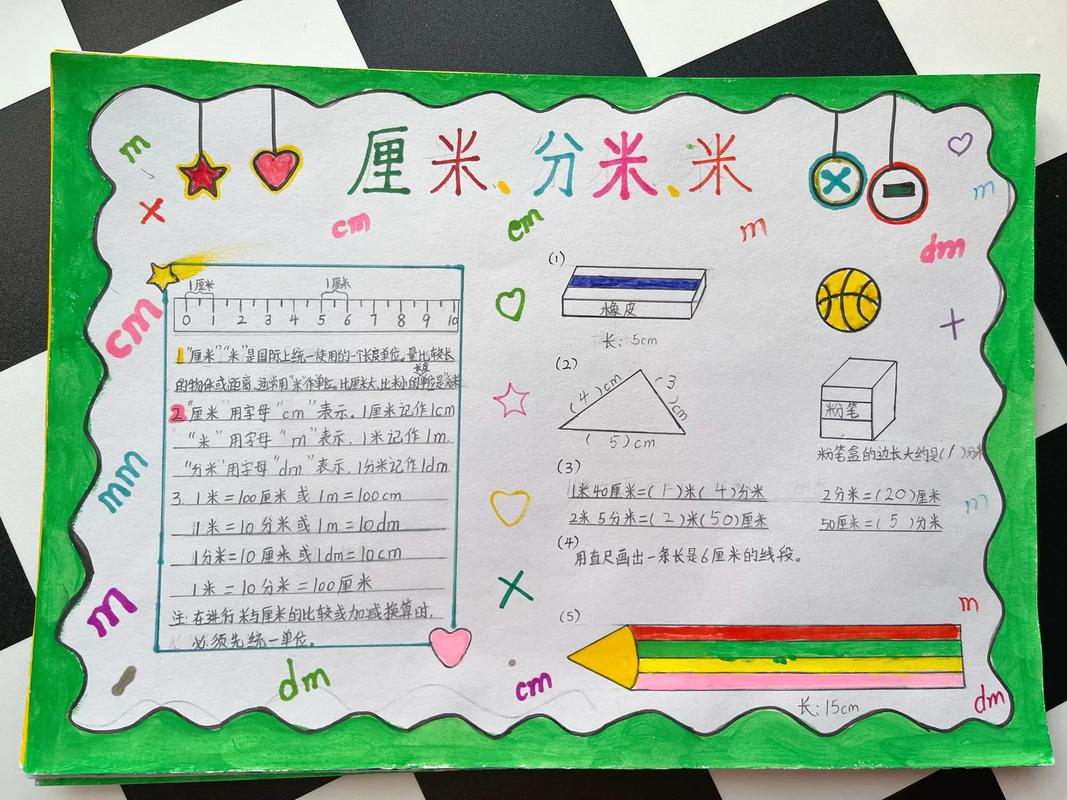 厘米、分米、米
m
m
cm
cm
m
dm
cm
1厘米
1厘米
0 1 2 3 4 5 6 7 8 9 10
1"厘米""米"是国际上统一使用的一个长度单位。量比较长
的物体或距离,通常用"米"作单位。比厘米大、比米小的长度单位是"分米"
2"厘米"用字母"cm"表示。1厘米记作1cm
"米"用字母"m"表示,1米记作1m.
"分米"用字母"dm"表示,1分米记作1dm
3. 1米=100厘米或1m=100cm
1米=10分米或1m=10dm
1分米=10厘米或1dm=10cm
1米=10分米=100厘米
注:在进行米与厘米的比较或加减换算时,
必须先统一单位。
mm
m
dm
cm
(1)
橡皮
长:5cm
(2)
(4)cm
(3)cm
(5)cm
粉笔
粉笔盒的边长大约是(1)分米
(3)
1米40厘米=(1)米(4)分米
2分米=(20)厘米
2米5分米=(2)米(50)厘米
50厘米=(5)分米
(4)
用直尺画出一条长是6厘米的线段。
(5)
长:15cm
m
m
dm